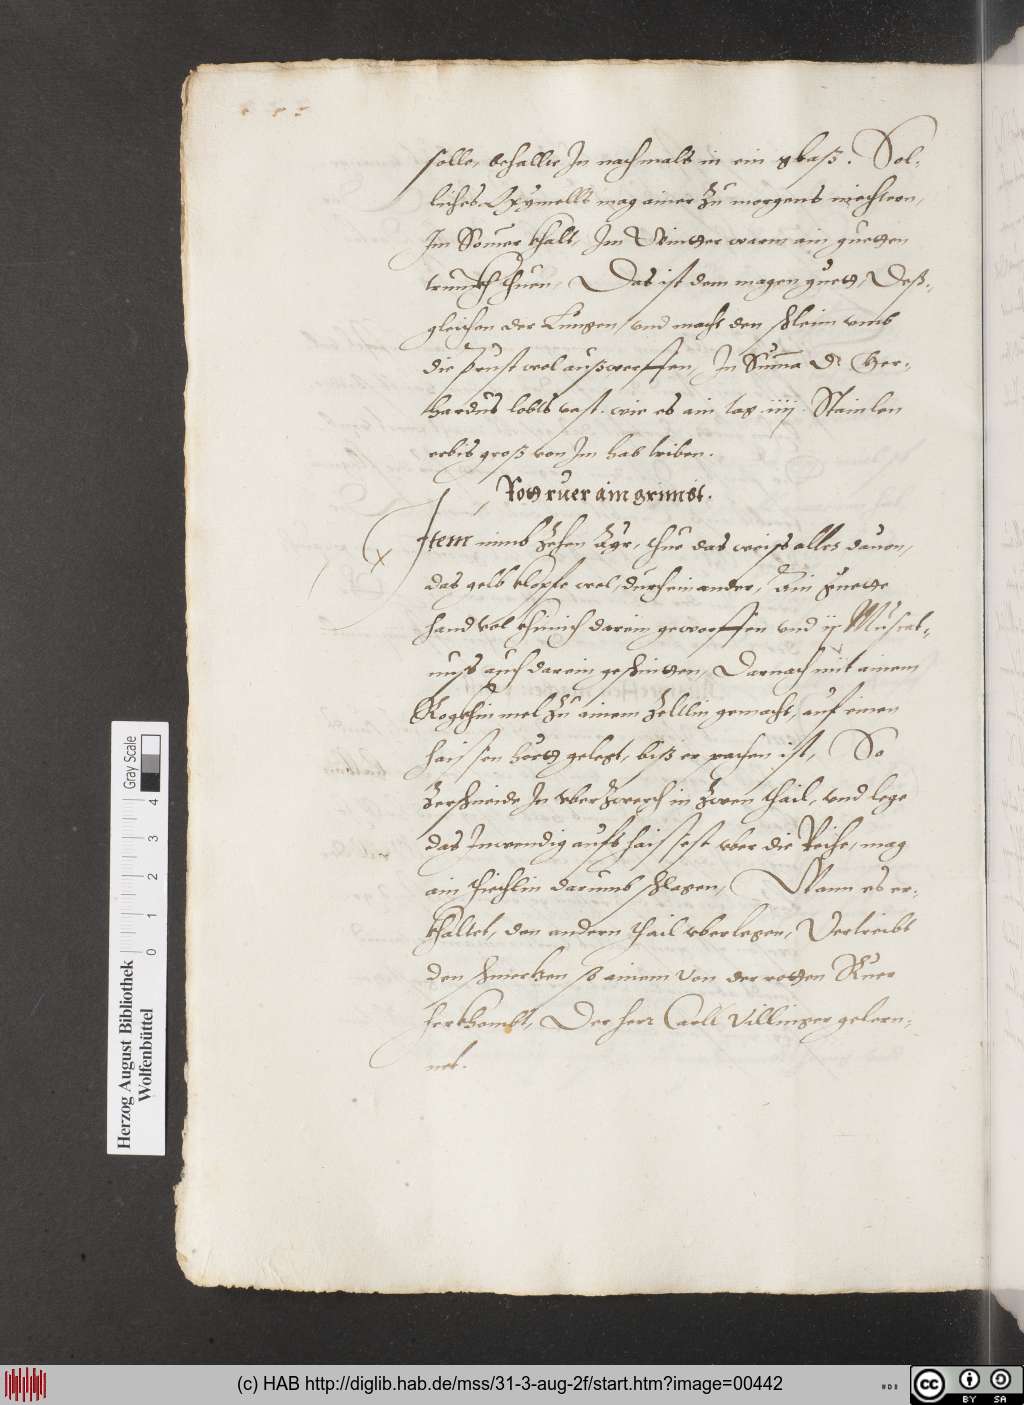 solle, behallte In nachmals in ein glaß. Sol-
liches Oxymellt mag ainer Zu morgens niechtern,
Im Somer khalt, Im Winnter warm ain guetten
trunckh thuen, Das ist dem magen guett, Deß-
gleichen der Lungen, und macht den schleim umb
die prust wol außwerffen, In Summa D. Ger-
hardus lobts vast. wie es ain tag iiij Stainlen
erbis groß von Im hab triben.
Rott ruer ain grimet.
Item nimb Zehen Ayr, thue das weiss alles davon,
das gelb klopfe wol durcheinander, Ain guette
hand vol khimich darein geworffen und ij Muscat-
nuss auch darein geschnitten, Darnach mit ainem
Rogkhin mel Zu ainem Zelltlin gemacht, auf einen
haissen herth gelegt, biß er pachen ist, So
Zerschneide In vberZwerch in Zwen thail, und lege
das Inwendig aufs haissest vber die Reihe, mag
ain thiechlin darumb schlagen, Wann es er-
khaltet, den andern thail vberlegen, Vertreibt
den schmertzen so ainem von der rotten Ruer
herkhombt, Der herr Carll Villinger gelern-
net.
Herzog August Bibliothek
Wolfenbüttel
0 1 2 3 4
Gray Scale
(c) HAB http://diglib.hab.de/mss/31-3-aug-2f/start.htm?image=00442
cc BY SA